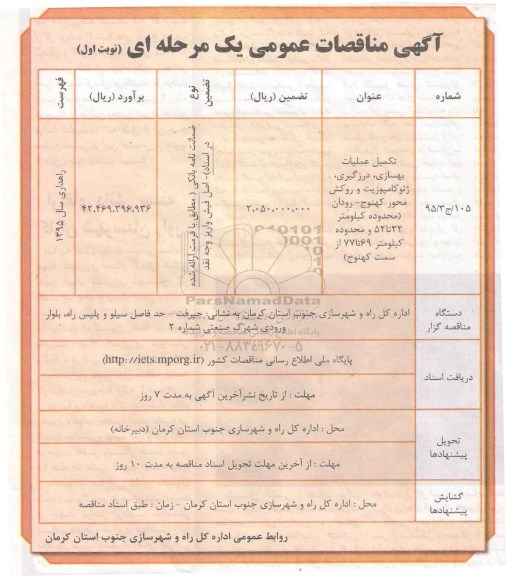 آگهی مناقصات عمومی یک مرحله ای (نوبت اول)
شماره
عنوان
تضمین (ریال)
نوع تضمین
برآورد (ریال)
فهرست
۹۵/۳/ج/۱۰۵
تکمیل عملیات
بهسازی، درزگیری،
ژئوکامپوزیت و روکش
محور کهنوج- رودان
(محدوده کیلومتر
۲۲تا۵۲ و محدوده
کیلومتر ۶۹تا۷۷ از
سمت کهنوج)
۲،۰۵۰،۰۰۰،۰۰۰
ضمانت نامه بانکی ( مطابق با فرمت ارائه شده
در اسناد)- اصل فیش واریز وجه نقد
۴۲،۴۶۹،۳۹۶،۹۳۶
راهداری سال ۱۳۹۵
دستگاه
مناقصه گزار
اداره کل راه و شهرسازی جنوب استان کرمان به نشانی: جیرفت - حد فاصل سیلو و پلیس راه، بلوار
ورودی شهرک صنعتی شماره ۲
دریافت اسناد
پایگاه ملی اطلاع رسانی مناقصات کشور (http://iets.mporg.ir)
مهلت : از تاریخ نشرآخرین آگهی به مدت ۷ روز
تحویل
پیشنهادها
محل : اداره کل راه و شهرسازی جنوب استان کرمان (دبیرخانه)
مهلت : از آخرین مهلت تحویل اسناد مناقصه به مدت ۱۰ روز
گشایش
پیشنهادها
محل : اداره کل راه و شهرسازی جنوب استان کرمان - زمان : طبق اسناد مناقصه
روابط عمومی اداره کل راه و شهرسازی جنوب استان کرمان
ParsNamadData
۰۲۱-۸۸۳۴۹۶۷۰-۵